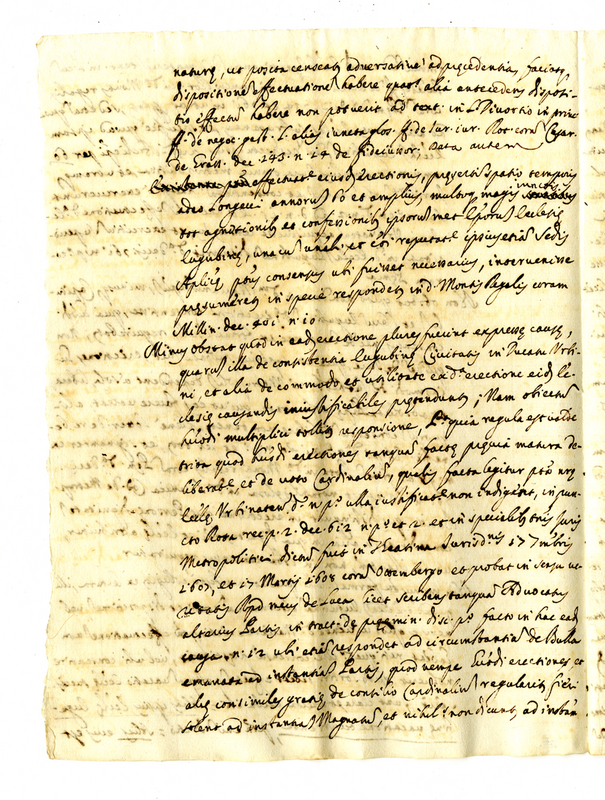 naturę, ut posita censeat adversative ad precedentia, faciat
dispositione effectuatione habere quas alia antecedens disposi-
tio effectus habere non potuerit ad text. in L. Divortio in princ.
ff. de negoc. gest. L. alias iuncta glos. ff. de Iur. iur. Rot. cor. Cesar.
de Grass. dec. 143. n. 14 de fideiussor, data autem
effectuat. eiusd. erectionis, presertim spatio temporis
adeo longevi annorum 60 et amplius, multoq. magis
tot agnitionib. et confessionib. ipsorum met Eccletię
Eugubin., una cum et ipsius etiam Sedis
Aplicę consensus ubi fuisset necessarius, intervenisse
presumeret in specie respondet in d. Montis Regalis coram
Millin. dec. 401. n. 10
Minus obstat quod in ead. erectione plures fuerint expressę causę,
quarum illa de consistentia Eugubinę Civitatis in Ducatu Urbi-
ni, et alia de commodo et utilitate ex d. erectione eid. Ec-
clesię causandis iniustificabiles pretendunt; Nam obiectum
huiusdi multiplici tollitur responsione, P.o quia regula est valde
trita quod huiusdi erectiones tanquam factę previa matura de-
liberat.e, et de voto Cardinalium, qualis facta legitur pro nra
Ecclę Urbinaten. d. n. p.o ulla iustificat.e non indigeat, in pun-
cto Rota rec. p. 2. dec. 612 n. p.o et 2. et in specieb. Iuris
Metropolitici dictum fuit in Theatina Iurisd.nis 17 Mbris
1607, et 17. Martis 1608 coram Ottembergo et probat in sensu ve-
ritatis Rpd meus de Luca licet scribens tanquam Advocatus
alterius Partis in tract. de premin. disc. p.o facto in hac ead.
causa n. 12 ubi etiam respondet ad circumstantia de Bulla
emanata ad instantia Partis, quod nempe huiusdi erectiones et
alię consimiles gratię de consilio Cardinalium regulariter fieri
solent ad instantia Magnatum et nihil. non dicunt ad instan